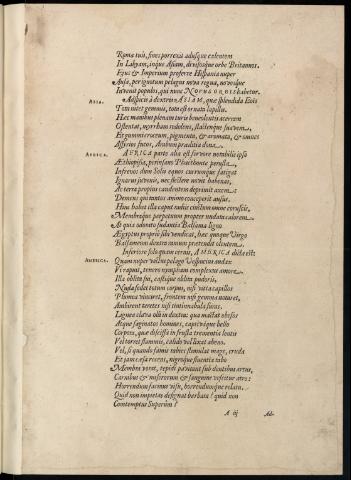 Roma tuis, fines porrexit adusque calentem
In Libyam, inque Asiam, divisosque orbe Britannos.
Ejus & Imperium proferre Hispania nuper
Ausa, per ignotum pelagus nova regna, novosque
Invenit populos, qui nunc NOVUS ORBIS habetur.
ASIA.
Adspice à dextrum ASIAM, quae splendida Eois
Tota nitet gemmis, tota est ornata lapillis.
Hec manibus plenam turis benevolentis acerram
Ostentat, myrrham redolens, stactenque suavem,
Et gummi crocumque, pigmenta, & aromata, & omnes
Assyrios fucos, Ambram praedivite dona.
AFRICA.
AFRICA parte alia est fervore notabilis ipso
Aethiopissa, per insanam Phaethonte perusta
Inferius dum Solis equos currumque fatigat
Ignarus juvenis, nec flectere novit habenas,
Ac terrae propius candentem deprimit axem.
Demens qui tantos animo conceperit ausus.
Huic habet illa caput radiis cinctum omne coruscis,
Membraque perpetuum propter nudata calorem
At quia odorato sudantia Balsama ligno
Aegyptus propriè sibi vendicat, haec quoque Virgo
Balsameum dextra ramum praetendit olentem.
Inferiore solo quam cernis, AMERICA dicta est
AMERICA.
Quam nuper vectus pelago Vespucius audax
Vi rapuit, tenero nympham complexus amore.
Illa oblita sui, castique oblita pudoris,
Nuda sedet totum corpus, nisi vitta capillos
Plumea vinciret, frontem nisi gemma notaret,
Ambirent teretes nisi tintinnabula suras.
Lignea clava olli in dextra: qua mactat obesos
Atque saginatos homines, captivaque bello
Corpora, quae discissa in frusta trementia lentis
Vel torret flammis, calido vel lixat aheno.
Vel, si quando famis rabies stimulat mage, cruda
Et jam caesa recens, nigroque fluentia tabo
Membra vorat, tepidi pavitant sub dentibus artus,
Carnibus & miserorum & sanguine vescitur atro:
Horrendum facinus visu, horrendumque relatu.
Quid non impietas designat barbara? quid non
Contemptus Superûm?
A iij
Ad-